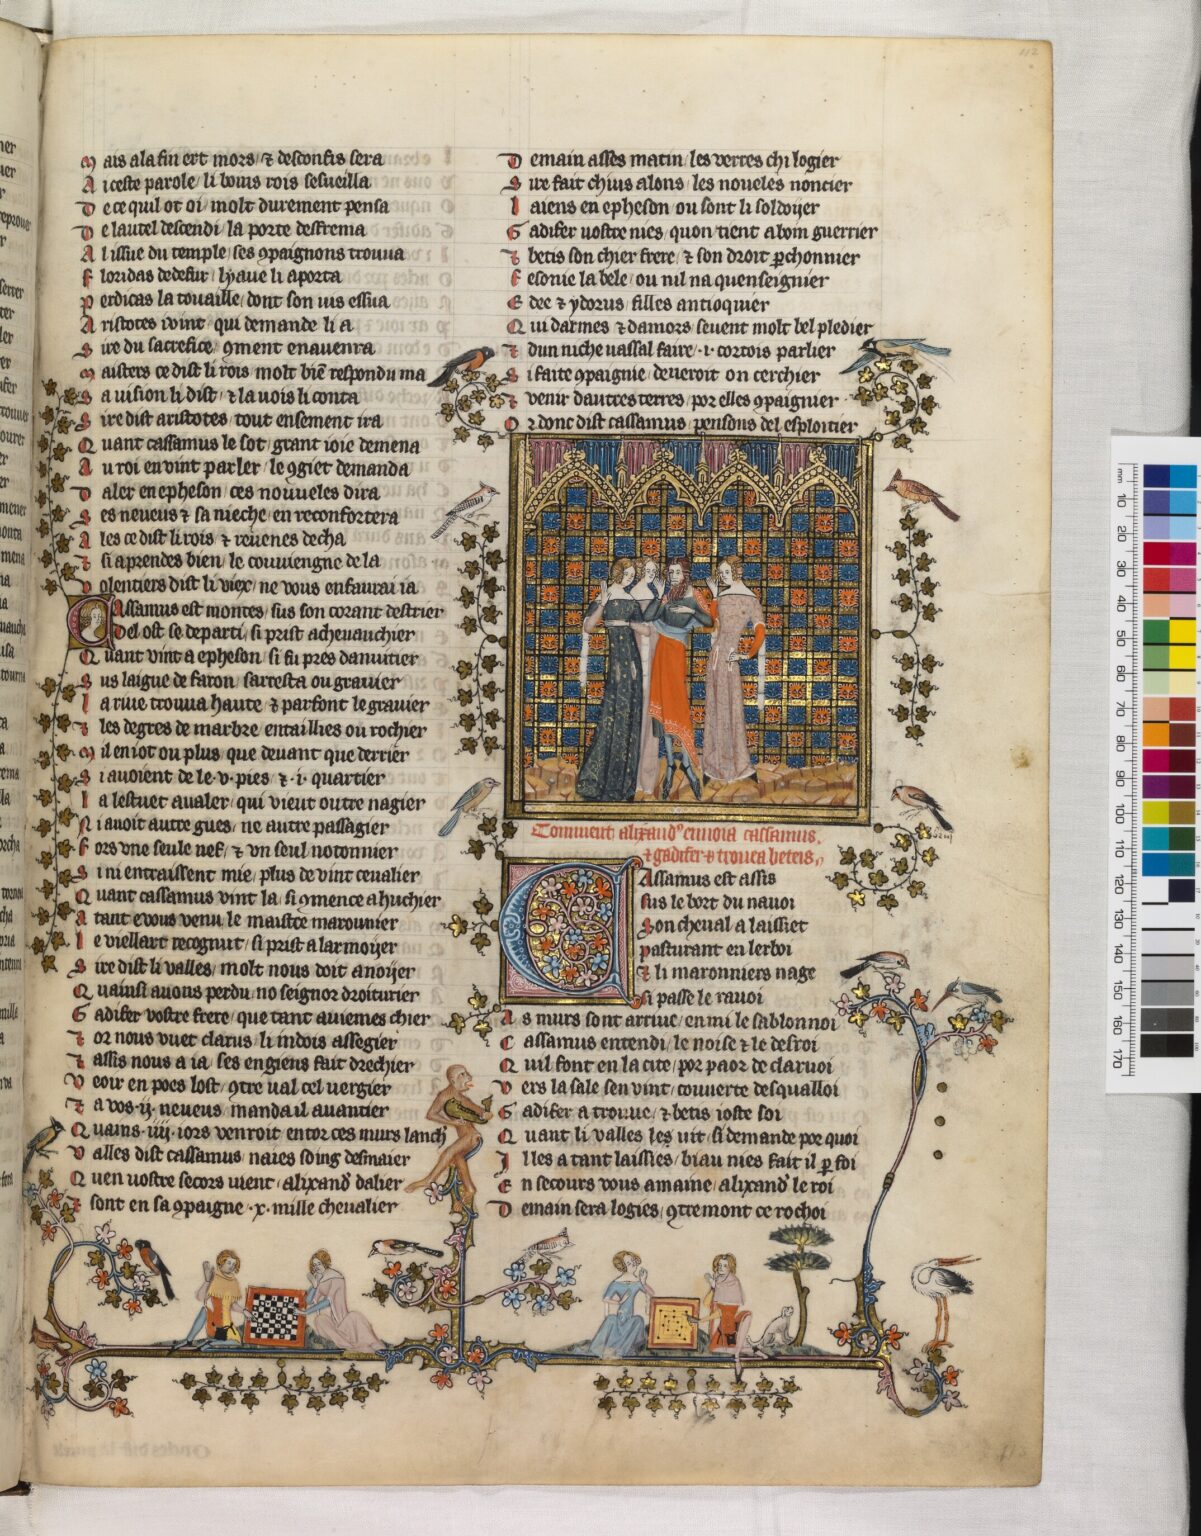 Mais ala fin ert mors ⁊ desconfis sera
A iceste parole li boins rois sesueilla
De ce quil ot oi molt durement pensa
De lautel descendi la porte desfrema
A lissue du temple ses 9paignons trouua
Floridas dedefur lyaue li aporta
Perdicas la touaille dont son uis essua
Aristotes i vint qui demande li a
Sire du sacrefice 9ment en auenra
Maisters ce dist li rois molt biē respondu ma
Sa uision li dist ⁊ la uois li conta
Sire dist aristotes tout ensement ira
Quant cassamus le sot grant ioie demena
Au roi en vint parler le 9giet demanda
Daler en epheson ces nouueles dira
Ses neueus ⁊ sa nieche en reconfortera
Ales ce dist li rois ⁊ reuenes decha
⁊ si aprendes bien le couuiengne de la
Volentiers dist li viex ne vous en faurai ia
Cassamus est montes sus son corant destrier
Del ost se departi si prist a cheuauchier
Quant vint a epheson si fu pres danuitier
Sus laigue de faron sarresta ou grauier
La riue trouua haute ⁊ parfont le grauier
⁊ les degres de marbre entaillies ou rochier
Mil en iot ou plus que deuant que derrier
Si auoient de le v pies ⁊ i quartier
La lestuet aualer qui vieut outre nagier
Ni auoit autre gues ne autre passagier
Fors vne seule nef ⁊ vn seul notonnier
Si ni entraissent mie plus de vint ceualier
Quant cassamus vint la si 9mence a huchier
Atant e vous venu le maistre marounier
Le viellart recognut si prist a larmoijer
Sire dist li valles molt nous doit anoijer
Quainsi auons perdu no seignor droiturier
Gadifer vostre frere que tant auiemes chier
⁊ or nous vuet clarus li indois assegier
⁊ assis nous a ia ses engiens fait drechier
Veoir en poes lost 9tre ual cel uergier
⁊ a vos ij neueus manda il auantier
Quains iiij iors venroit entor ces murs lanch
Valles dist cassamus naies soing desmaier
Quen vostre secors uient alixand dalier
⁊ sont en sa 9paigne x mille cheualier
Demain asses matin les verres chi logier
Sire fait chius alons les noueles noncier
Laiens en epheson ou sont li soldoijer
Gadifer uostre nies quon tient a boin guerrier
⁊ betis son chier frere ⁊ son droit pchonnier
Fesonie la bele ou nil na quenseignier
Edee ⁊ ydorus filles antioquier
Qui darmes ⁊ damors seuent molt bel pledier
⁊ dun niche uassal faire i cortois parlier
Si faite 9paignie deueroit on cerchier
⁊ venir dautres terres por elles 9paignier
Or donc dist cassamus pensons del esploitier
Comment alixand enuoia cassamus
⁊ gadifer ⁊ trouea betis
Cassamus est assis
sus le bort du nauoi
Son cheual a laissiet
pasturant en lerboi
⁊ li maronniers nage
si passe le rauoi
As murs sont arriue en mi le sablonnoi
Cassamus entendi le noise ⁊ le desroi
Quil font en la cite por paor de claruoi
Vers la sale sen vint couuerte desqualloi
Gadifer a trouue ⁊ betis ioste soi
Quant li valles les uit si demande por quoi
Illes a tant laissies biau nies fait il p foi
En secours vous amaine alixand le roi
Demain sera logies 9tremont ce rochoi
mm 10 20 30 40 50 60 70 80 90 100 110 120 130 140 150 160 170